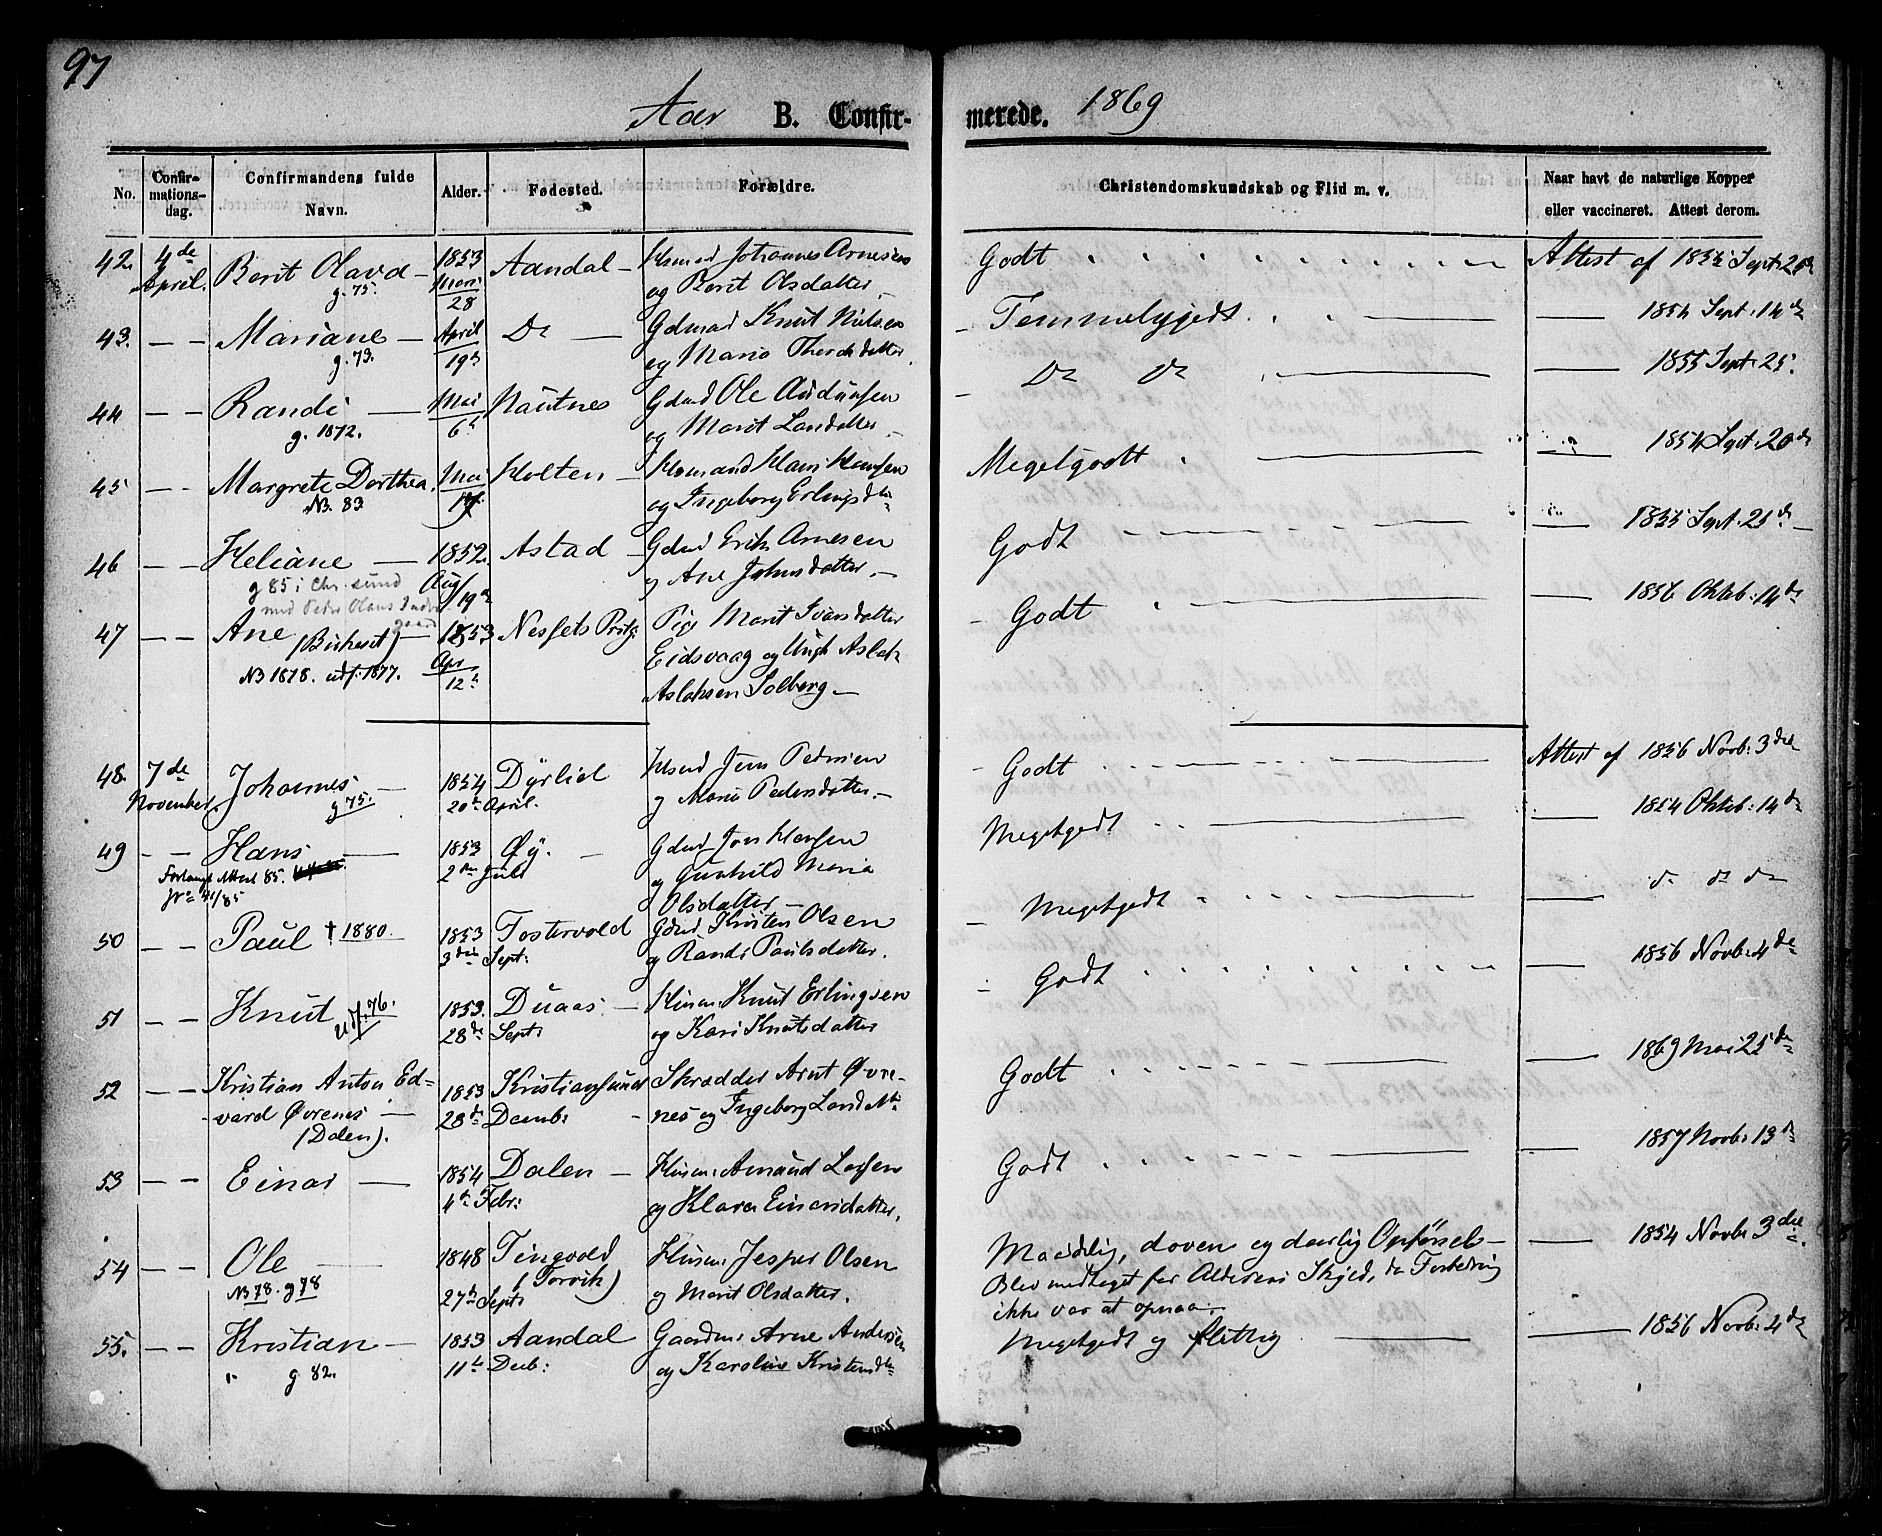 97
Aar B. Confirmerede. 1869
No. Confirmationsdag. Confirmandens fulde Navn. Alder. Fødested. Forældre. Christendomskundskab og Flid m. v. Naar havt de naturlige Kopper eller vaccineret. Attest derom.
42. 4de April. Berit Olava 1853 Aandal Johannes Arnesen Godt Attest af Sept: 25
g. 75. 28 og Berit Olsdatter
43. Mariane April De Gdmd Knut Nielsen Temmeliggodt 1854 Sept: 14de
g. 73. 19de og
44 Randi Mai Nautnes Gdmd Ole Audunsen De de 1855 Sept: 25
g. 1872. 6te og Marit Larsdatter
45 Margrete Dorthea Mai Holten Husmand Hans Hansen Megetgodt 1854 Sept 20de
NB. 83 og Ingeborg Erlingsdtr
46 Heliane 1852. Astad Gdmd Erik Arnesen Godt 1855 Sept. 25de
g 85 i Chr. sund Aug og Ane Johnsdatter
med Peder Olaus 19de
47 Ane (Birkeset) 1853 Nessets Prstg Pige Marit Ivarsdatter Godt 1856 Oktob: 14de
NB 1878. udf. 1877. Apr Eidsvaag og Ungk Aslak
12te Aslaksen Solberg
48. 7de November Johannes 1854 Dyrliel Jens Pedersen Godt Attest af 1856 Novb: 3die
g 75. 20de April. og Maria Pedersdatter
49 Hans 1853 Øy. Gdmd Jon Hansen Megetgodt 1854 Oktob: 14de
Forlangt Attest 85. 2den Juli og Gunhild Maria
No 41/85 Olsdatter
50 Paul † 1880. 1853 Fostervold Gdmd Kristen Olsen Megetgodt de de de
3die Sept: og Randi Paulsdatter.
51 Knut Udf. 76. 1853. Duaas Husm: Knut Erlingsen Godt 1856 Novb: 4de
28de Septr og Kari Knutsdatter
52 Kristian Anton Ed- 1853 Kristiansund Skrædder Arnt Øvre- Godt 1869 Mai 25de
vard Øvrenes 28de Decmb: nes og Ingeborg Larsdatr
(Dalen).
53 Einar 1854 Dalen Husm: Amund Larsen Godt 1857 Novb: 13de
4de Febr: og Klara Einarsdatter,
54 Ole 1848 Tingvold Husm: Jesper Olsen Maadelig, doven og daarlig Opførsel 1854 Novbr 3die
NB 78. g 78 27de Septr (Torvik) og Marit Olsdatter. Blev modtaget for Alderens Skyld, da Forbedring
ikke var at opnaa.
55. Kristian 1853 Aandal Gaardm: Arne Andersen Megetgodt og flittig 1856 Novb: 4de
g 82. 11te Decb: og Karoline Kristensdtr